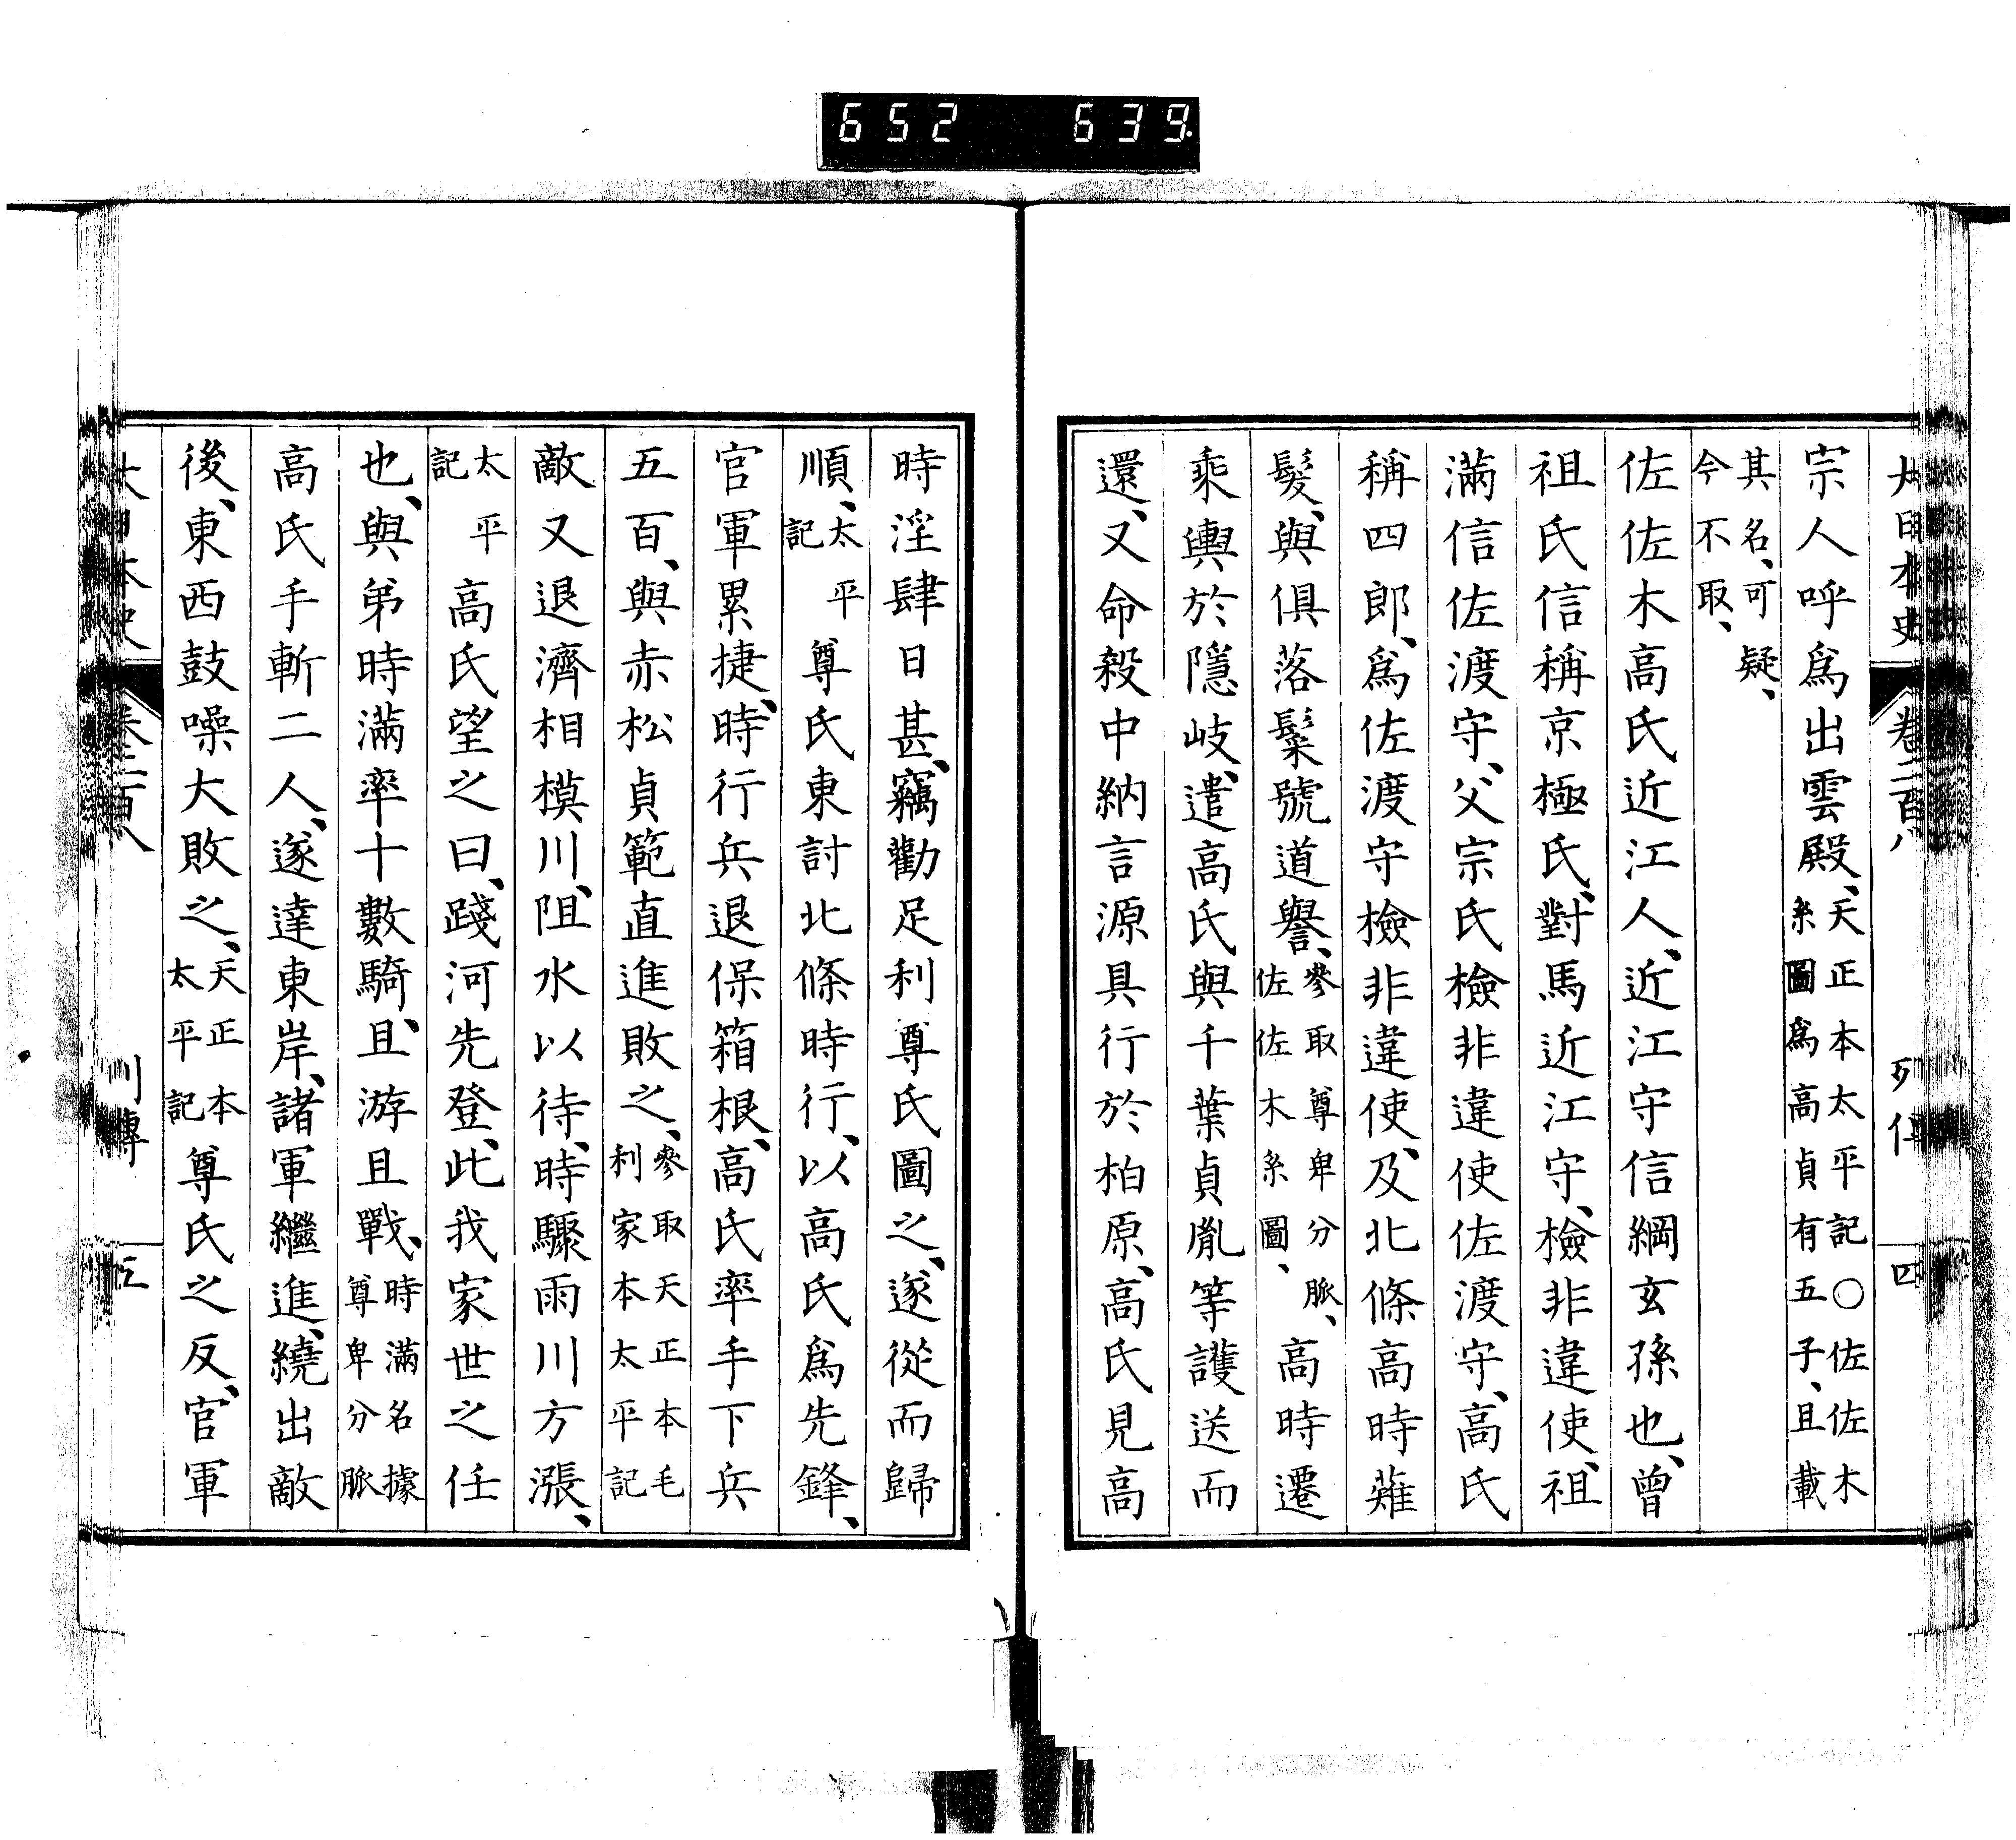 652 639
大日本史 卷二百八 列傳 四
宗人呼爲出雲殿、天正本太平記○佐佐木
系圖爲高貞有五子、且載
其名、可疑、
今不取、
佐佐木高氏近江人、近江守信綱玄孫也、曾
祖氏信稱京極氏、對馬近江守、檢非違使、祖
滿信佐渡守、父宗氏檢非違使佐渡守、高氏
稱四郎、爲佐渡守檢非違使、及北條高時薙
髮、與俱落髮號道譽、參取尊卑分脈、
佐佐木系圖、高時遷
乘輿於隱岐、遣高氏與千葉貞胤等護送而
還、又命殺中納言源具行於柏原、高氏見高
時淫肆日甚、竊勸足利尊氏圖之、遂從而歸
順、太平
記尊氏東討北條時行、以高氏爲先鋒、
官軍累捷、時行兵退保箱根、高氏率手下兵
五百、與赤松貞範直進敗之、參取天正本毛
利家本太平記
敵又退濟相模川、阻水以待、時驟雨川方漲、
太平
記高氏望之曰、踐河先登、此我家世之任
也、與弟時滿率十數騎、且游且戰、時滿名據
尊卑分脈
高氏手斬二人、遂達東岸、諸軍繼進、繞出敵
後、東西鼓噪大敗之、天正本
太平記尊氏之反、官軍
大日本史 卷二百八 列傳 三